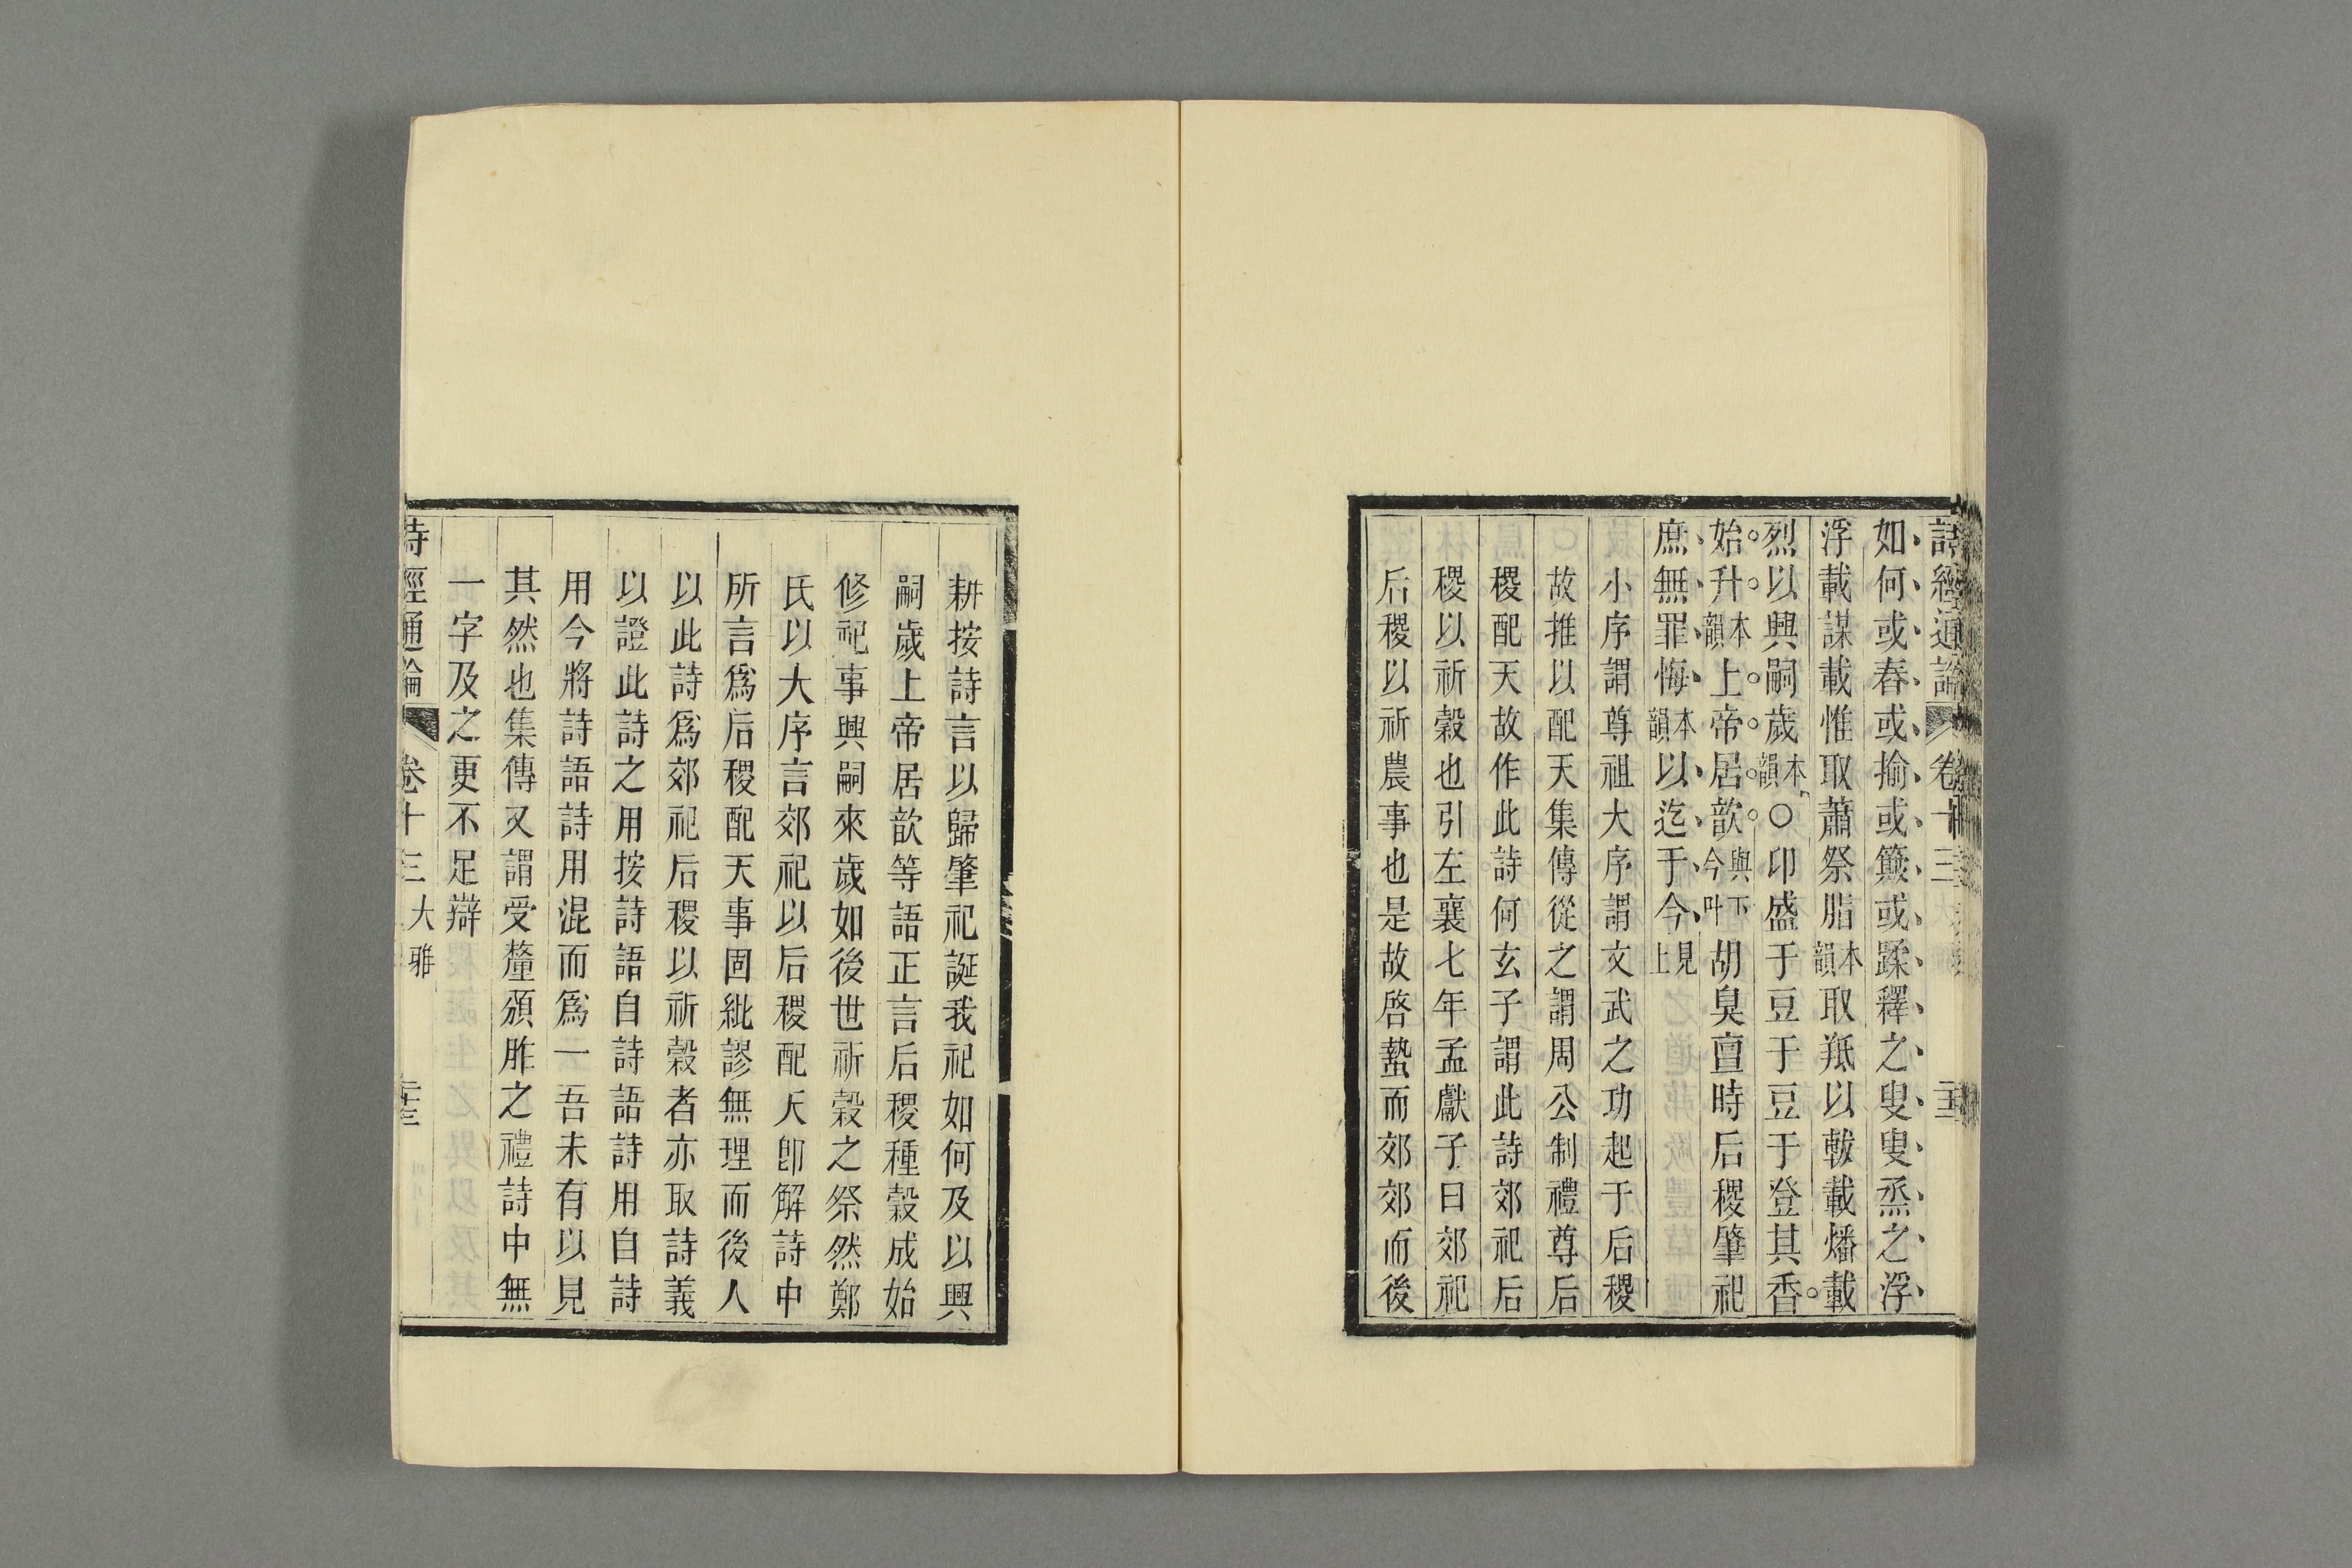 詩經通論 卷十三
如何或舂或揄或簸或蹂釋之叟叟烝之浮
浮載謀載惟取蕭祭脂本韻取羝以軷載燔載
烈以興嗣歲本韻〇卬盛于豆于豆于登其香
始升本韻上帝居歆與下今叶胡臭亶時后稷肇祀
庶無罪悔本韻以迄于今見上
小序謂尊祖大序謂文武之功起于后稷
故推以配天集傳從之謂周公制禮尊后
稷配天故作此詩何玄子謂此詩郊祀后
稷以祈穀也引左襄七年孟獻子曰郊祀
后稷以祈農事也是故啓蟄而郊郊而後
耕按詩言以歸肇祀誕我祀如何及以興
嗣歲上帝居歆等語正言后稷種穀成始
修祀事興嗣來歲如後世祈穀之祭然鄭
氏以大序言郊祀以后稷配天卽解詩中
所言爲后稷配天事固紕謬無理而後人
以此詩爲郊祀后稷以祈穀者亦取詩義
以證此詩之用按詩語自詩語詩用自詩
用今將詩語詩用混而爲一吾未有以見
其然也集傳又謂受釐頒胙之禮詩中無
一字及之更不足辯
詩經通論 卷十三 大雅 二十三